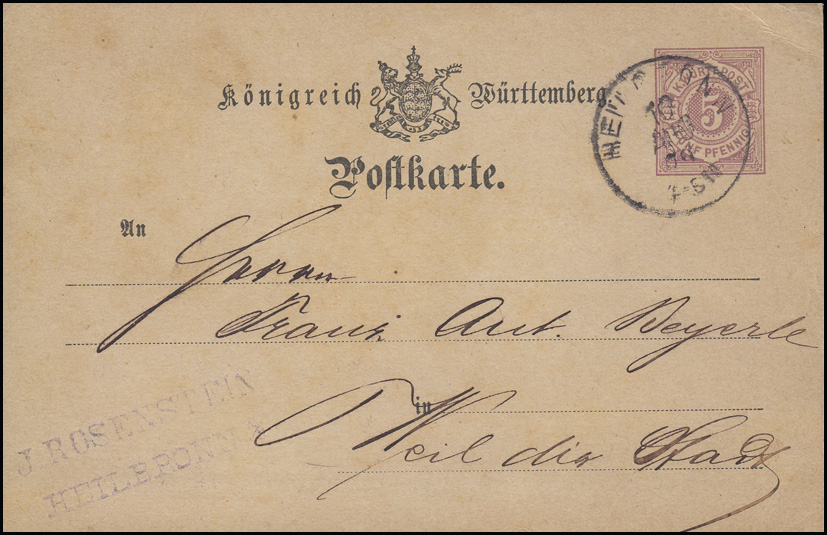 Königreich Württemberg
Postkarte.
K. WÜRTT. POST
5
FÜNF PFENNIG
HEILBRONN
19
78
An
Herrn
Franz Ant. Beyerle
in Weil die Stadt
J. ROSENSTEIN
HEILBRONN